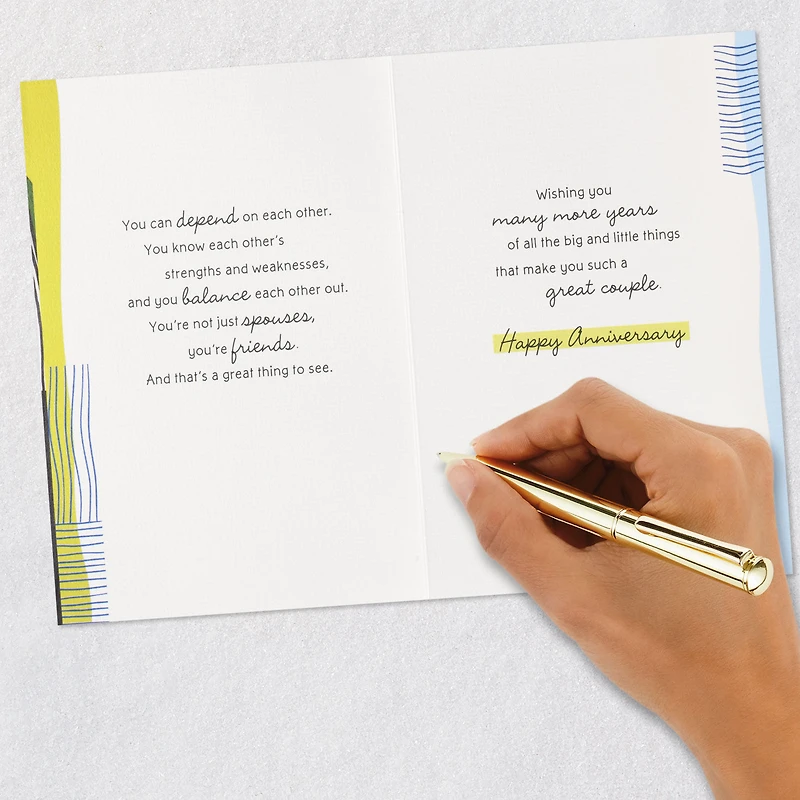 You can depend on each other.
You know each other's
strengths and weaknesses,
and you balance each other out.
You're not just spouses,
you're friends.
And that's a great thing to see.
Wishing you
many more years
of all the big and little things
that make you such a
great couple.
Happy Anniversary